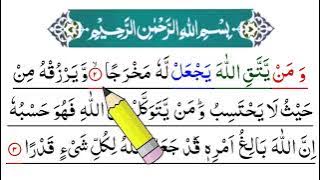 بِسْمِ اللهِ الرَّحْمٰنِ الرَّحِيْمِ
وَ مَنْ يَّتَّقِ اللّٰهَ يَجْعَلْ لَّهٗ مَخْرَجًا ۙ﴿۲﴾ وَّ يَرْزُقْهُ مِنْ
حَيْثُ لَا يَحْتَسِبُ ؕ وَ مَنْ يَّتَوَكَّلْ اللّٰهِ فَهُوَ حَسْبُهٗ ؕ
اِنَّ اللّٰهَ بَالِغُ اَمْرِهٖ ؕ قَدْ جَعَلَ اللّٰهُ لِكُلِّ شَيْءٍ قَدْرًا ﴿۳﴾